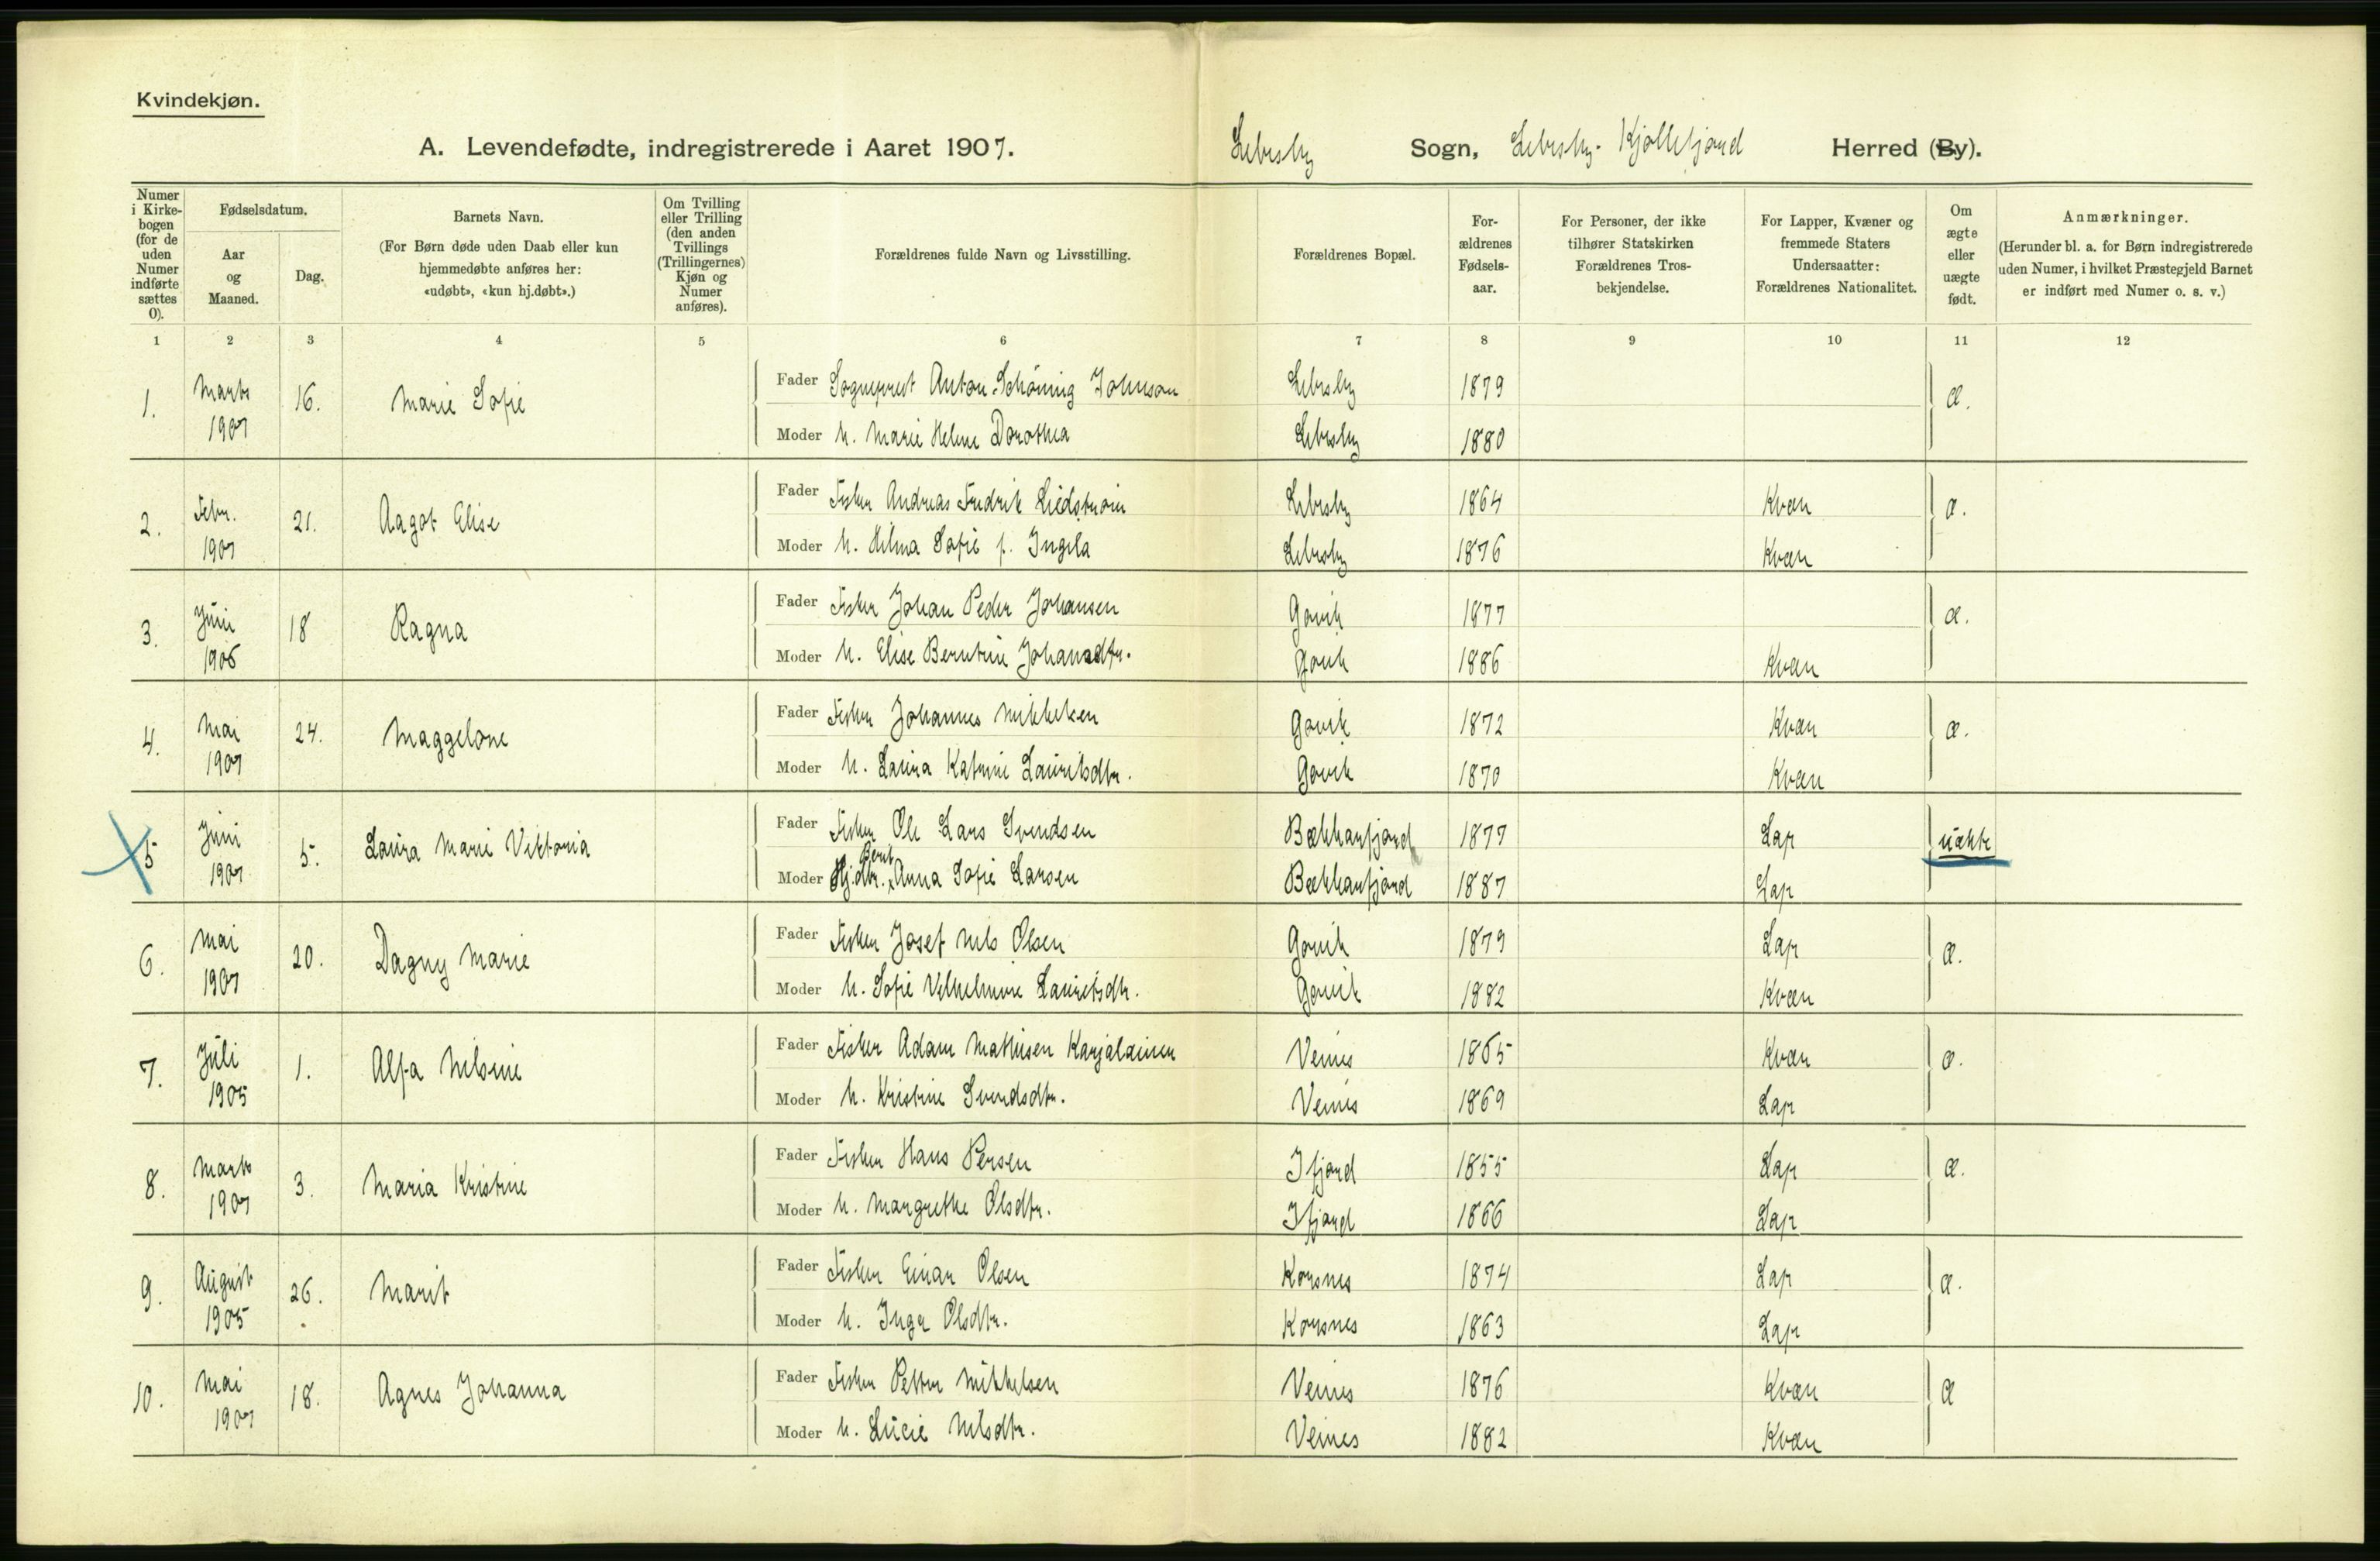 Kvindekjøn.
A. Levendefødte, indregistrerede i Aaret 1907. Lebesby Sogn, Lebesby-Kjøllefjord Herred (By).
Numer i Kirkebogen (for de uden Numer indførte sættes 0).
Fødselsdatum.
Aar og Maaned.
Dag.
Barnets Navn.
(For Børn døde uden Daab eller kun hjemmedøbte anføres her: «udøbt», «kun hj.døbt».)
Om Tvilling eller Trilling (den anden Tvillings (Trillingernes) Kjøn og Numer anføres).
Forældrenes fulde Navn og Livsstilling.
Forældrenes Bopæl.
Forældrenes Fødselsaar.
For Personer, der ikke tilhører Statskirken Forældrenes Trosbekjendelse.
For Lapper, Kvæner og fremmede Staters Undersaatter: Forældrenes Nationalitet.
Om ægte eller uægte født.
Anmærkninger.
(Herunder bl. a. for Børn indregistrerede uden Numer, i hvilket Præstegjeld Barnet er indført med Numer o. s. v.)
1 2 3 4 5 6 7 8 9 10 11 12
1. Marts 1907 16. Marie Sofie
Fader Sogneprest Anton Schöning Johnson Lebesby 1879 æ.
Moder h. Marie Helene Dorothea Lebesby 1880
2. Febr. 1907 21. Aagot Elise
Fader Fisker Andreas Fredrik Liedstrøm Lebesby 1864 Kvæn æ.
Moder h. Hilma Sofie f. Ingila Lebesby 1876 Kvæn
3. Juni 1906 18 Ragna
Fader Fisker Johan Peder Johansen Gavik 1877 æ.
Moder h. Elise Berntine Johansdtr. Gavik 1886 Kvæn
4. Mai 1907 24. Maggelone
Fader Fisker Johannes Mikkelsen Gavik 1872 Kvæn æ.
Moder h. Laura Katrine Lauritsdtr. Gavik 1870 Kvæn
5 Juni 1907 5. Laura Marie Viktoria
Fader Fisker Ole Lars Svendsen Bækkarfjord 1877 Lap uækte
Moder Hj.dtr. Berit Anna Sofie Larsen Bækkarfjord 1887 Lap
6. Mai 1907 20. Dagny Marie
Fader Fisker Josef Nils Olsen Gavik 1879 Lap æ.
Moder h. Sofie Vilhelmine Lauritsdtr. Gavik 1882 Kvæn
7. Juli 1905 1. Alfa Nilsine
Fader Fisker Adam Mathisen Karjalainen Veines 1865 Kvæn æ.
Moder h. Kristine Svendsdtr. Veines 1869 Lap
8. Marts 1907 3. Maria Kristine
Fader Fisker Hans Persen Ifjord 1855 Lap æ.
Moder h. Margrethe Olsdtr. Ifjord 1866 Lap
9. August 1905 26. Marit
Fader Fisker Einar Olsen Korsnes 1874 Lap æ.
Moder h. Inga Olsdtr. Korsnes 1863 Lap
10. Mai 1907 18. Agnes Johanna
Fader Fisker Petter Mikkelsen Veines 1876 Kvæn æ
Moder h. Lucie Nilsdtr. Veines 1882 Kvæn